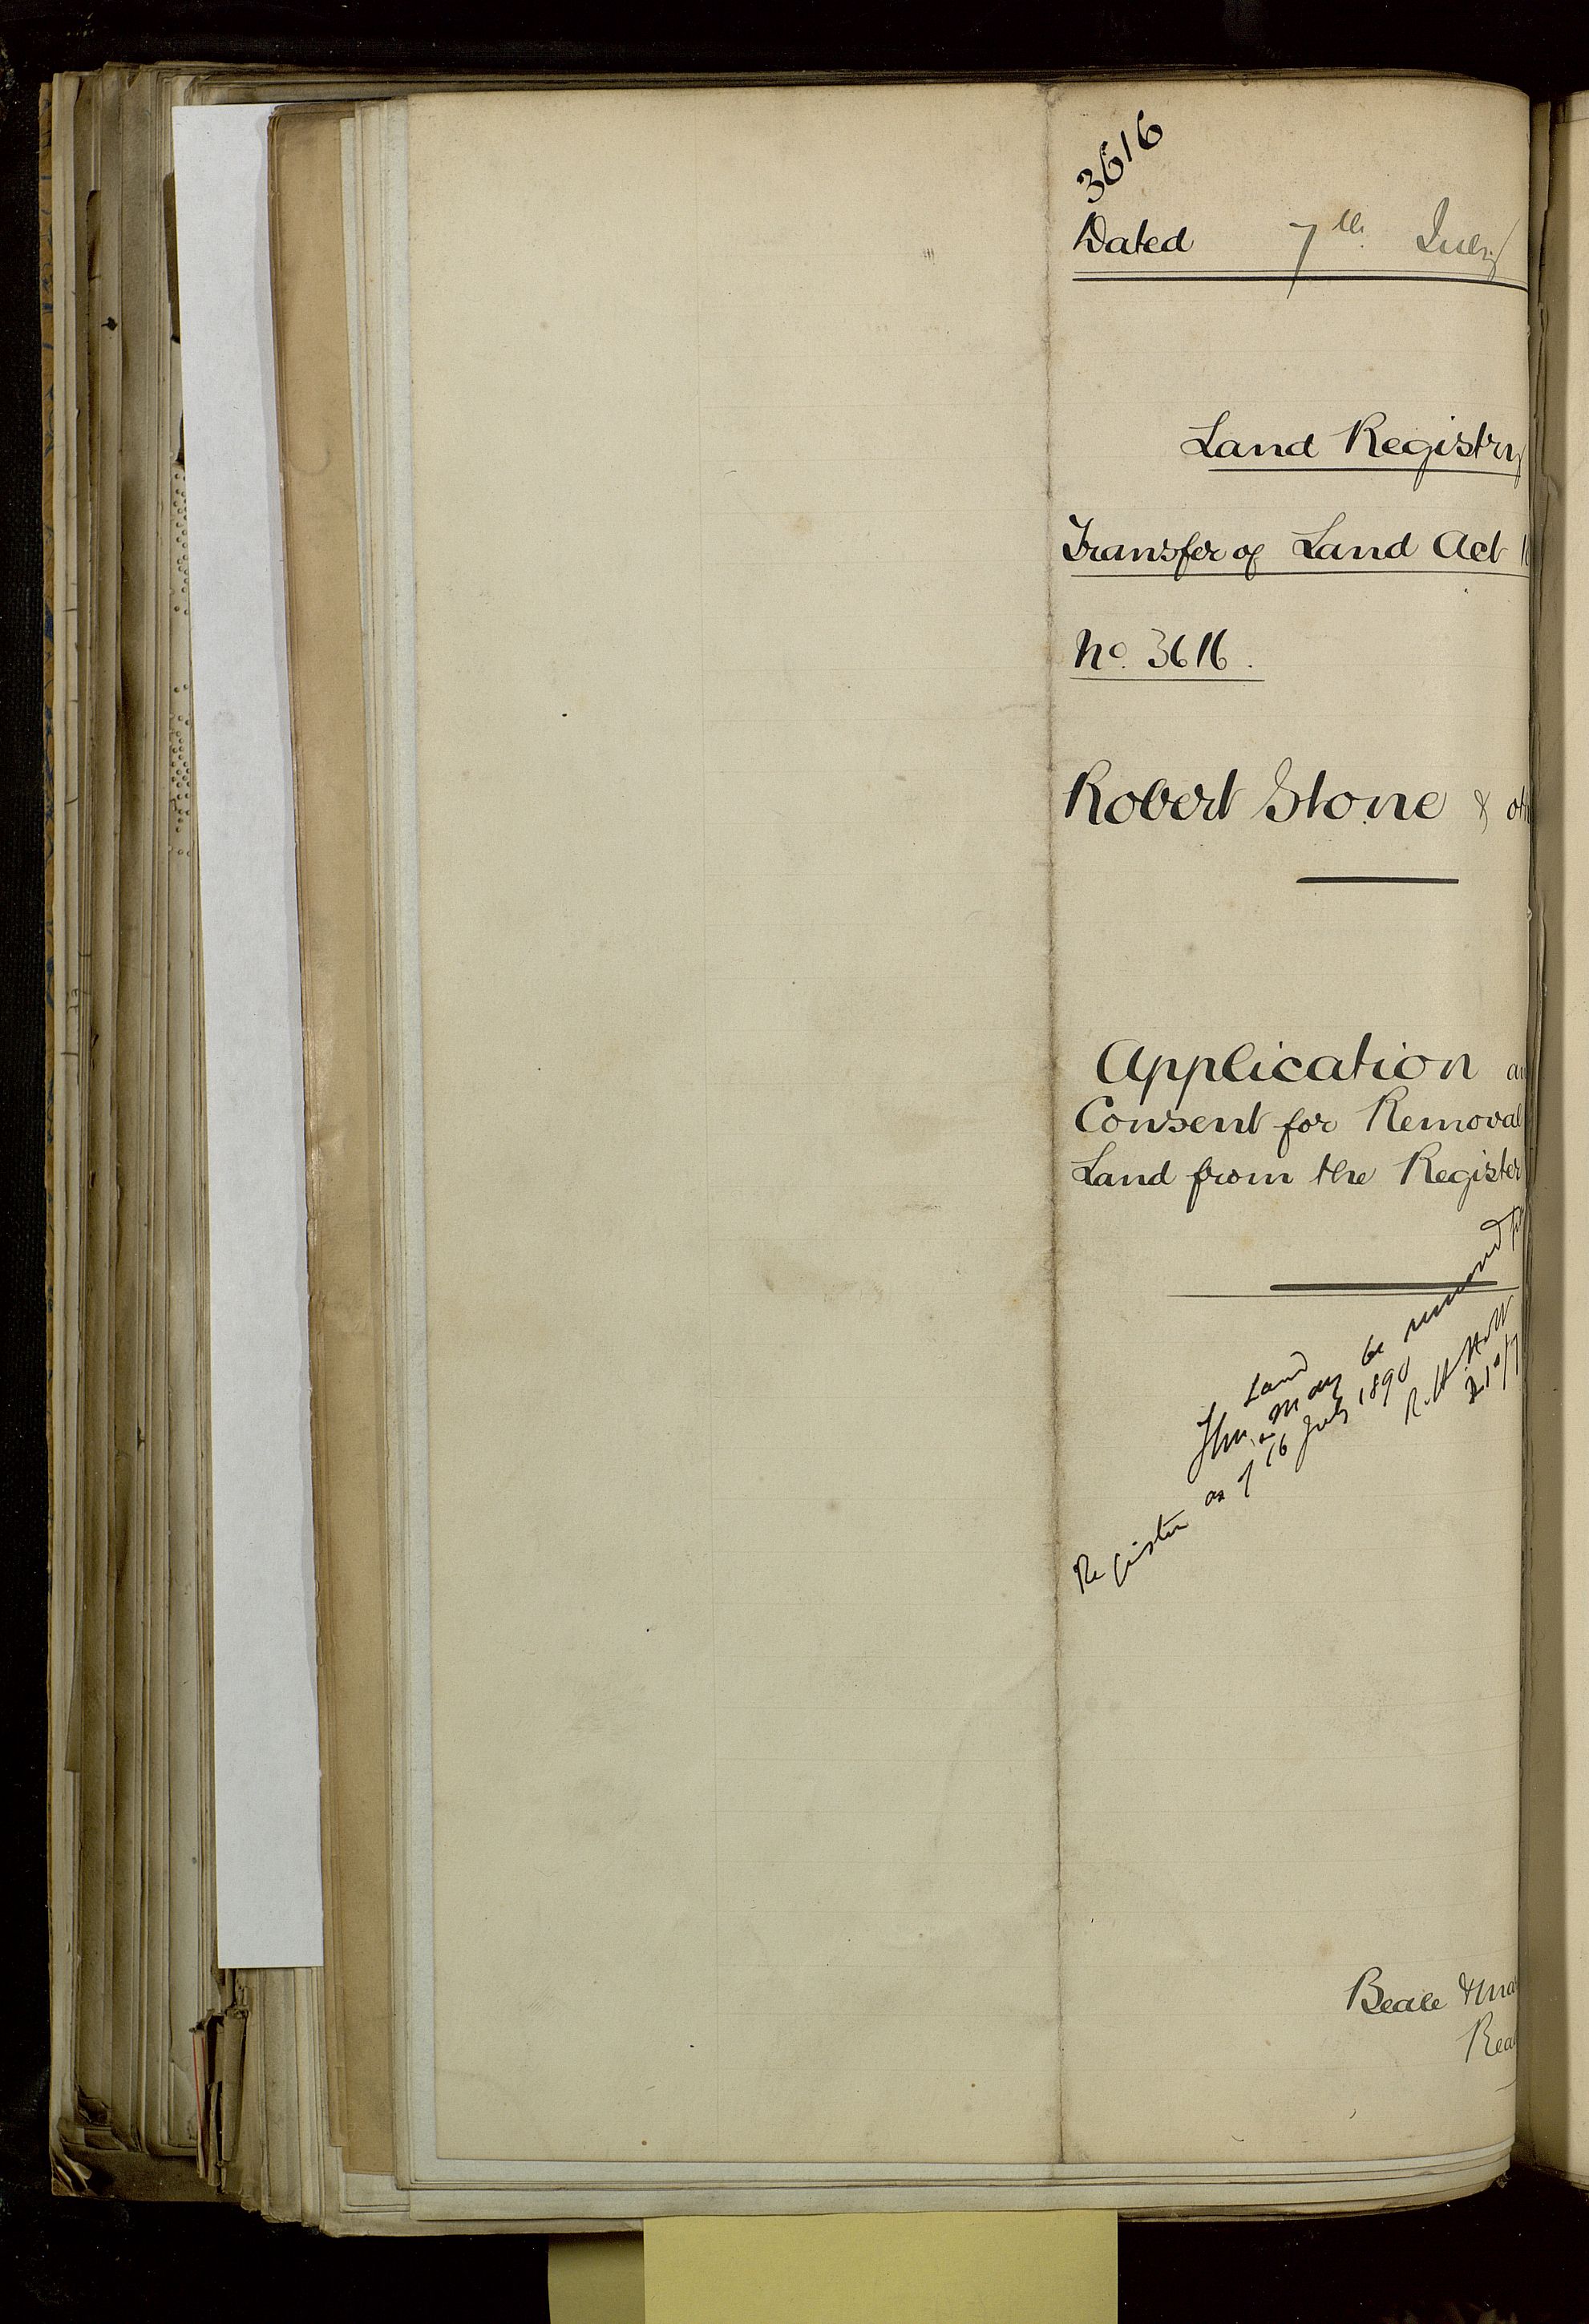 3616
Dated 7th July
Land Registry
Transfer of Land Act
No. 3616.
Robert Stone &
Application
Consent for Removal
Land from the Register
Land
This may be removed
Register as of 16 July 1890
R. H. Holt
Beale &